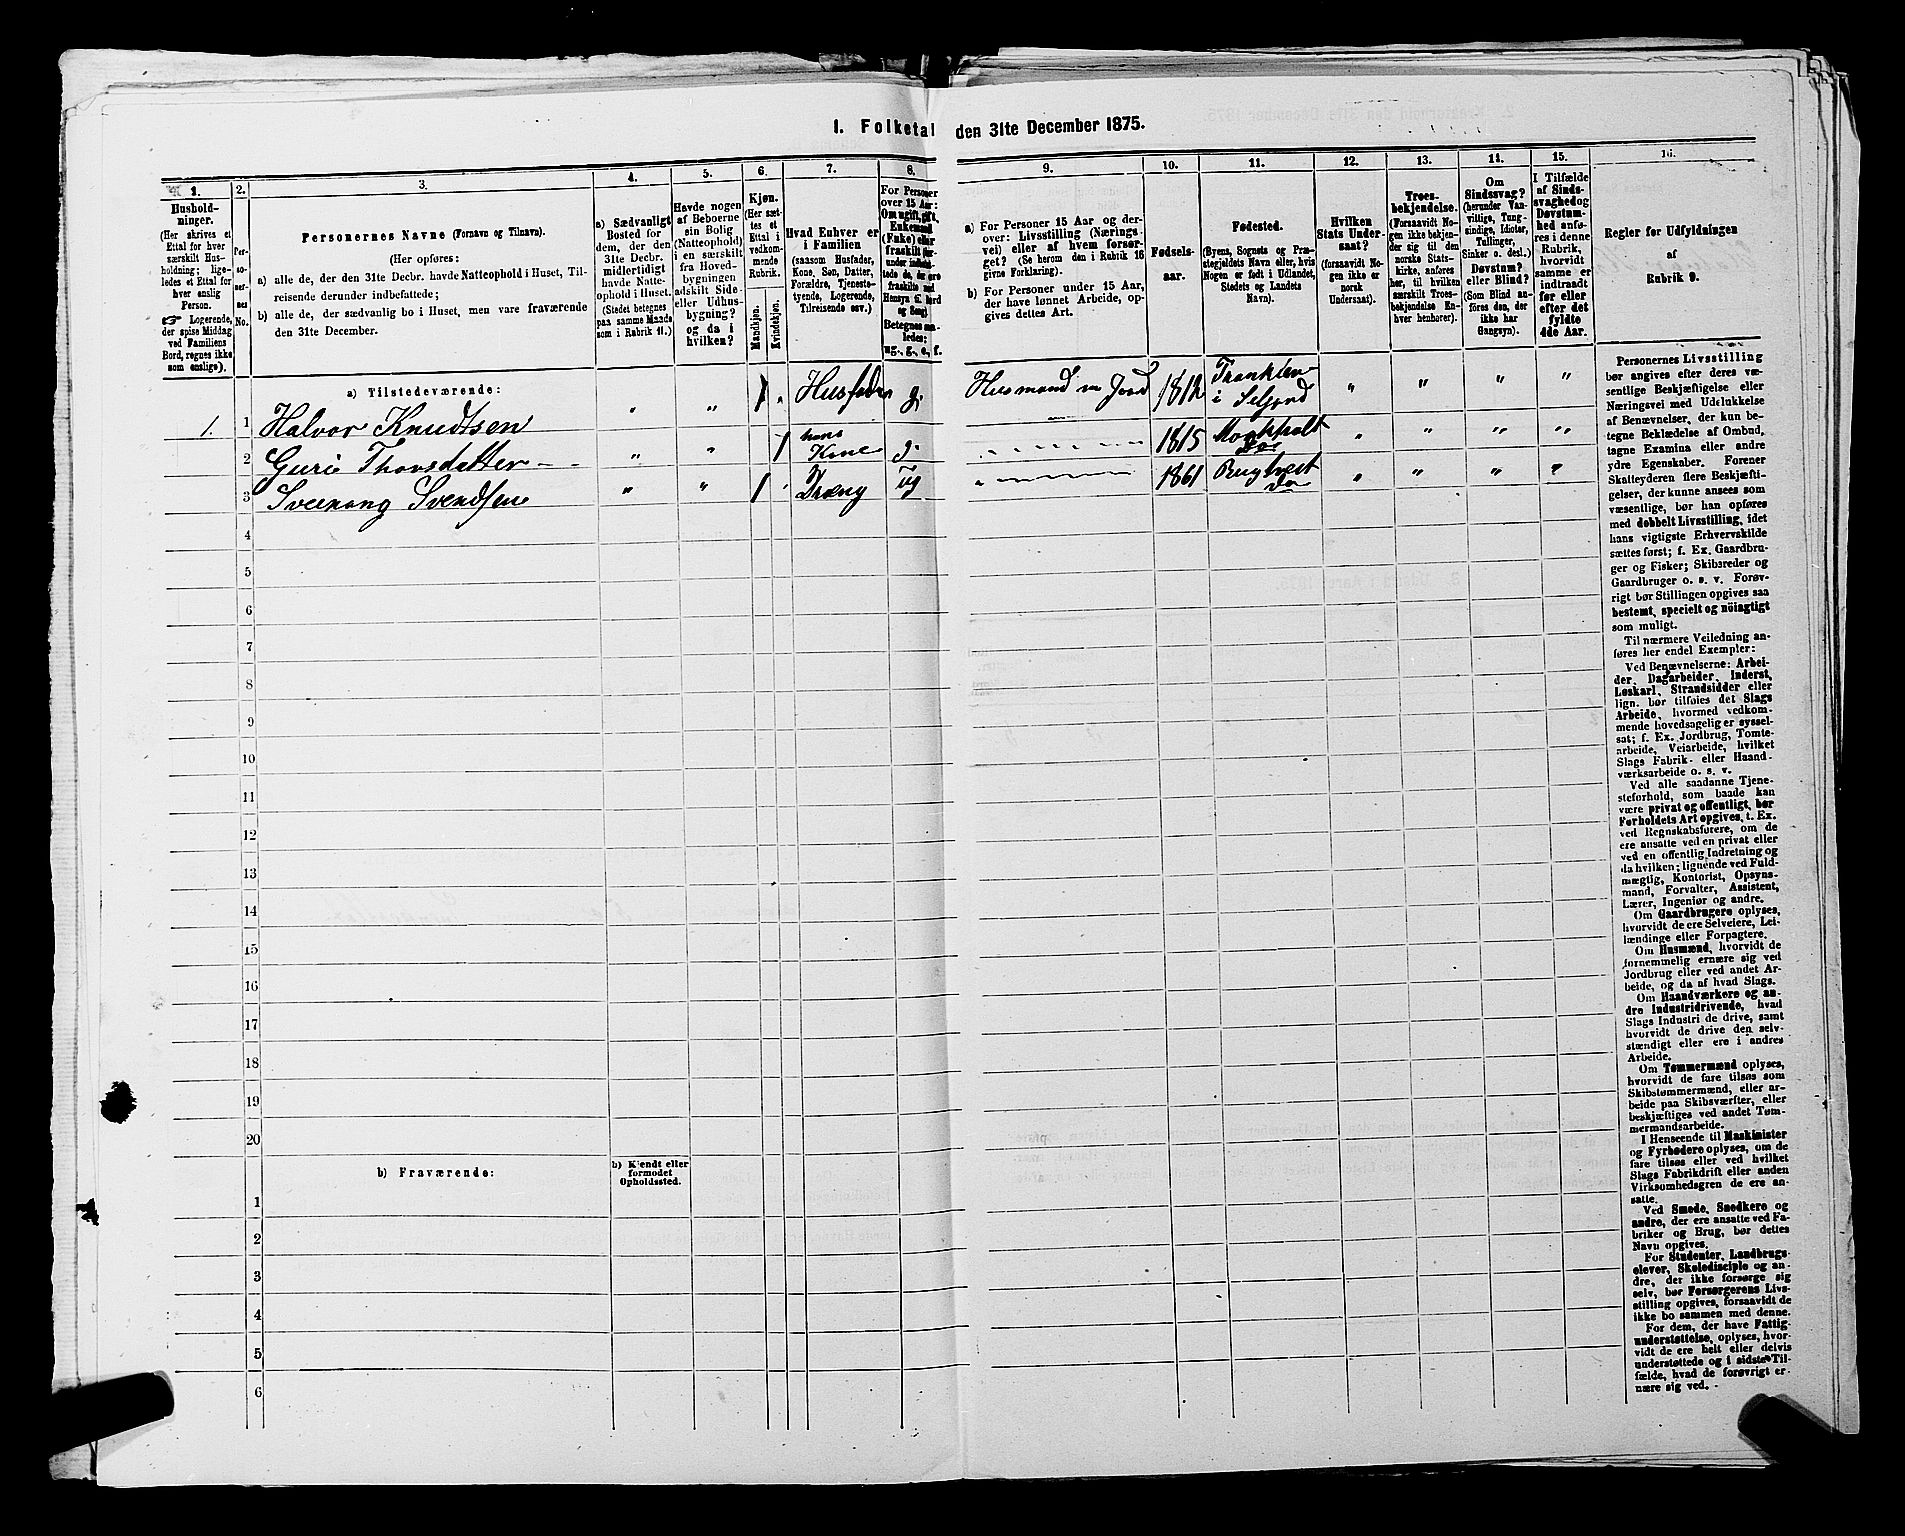 1. Folketal den 31te December 1875.
1.
2.
3.
4.
5.
6.
7.
8.
9.
10.
11.
12.
13.
14.
15.
16.
Hushold-
ninger.
(Her skrives et
Ettal for hver
særskilt Hus-
holdning; lige-
ledes et Ettal for
hver enslig
Person.
☞ Logerende,
der spise Middag
ved Familiens
Bord, regnes ikke
som enslige).
Per-
so-
ner-
nes
No.
Personernes Navne (Fornavn og Tilnavn).
(Her opføres:
a) alle de, der den 31te Decbr. havde Natteophold i Huset, Til-
reisende derunder indbefattede;
b) alle de, der sædvanlig bo i Huset, men vare fraværende
den 31te December.
a) Sædvanligt
Bosted for
dem, der den
31te Decbr.
midlertidigt
havde Natte-
ophold i Huset.
(Stedet betegnes
paa samme Maade
som i Rubrik 11.)
Havde nogen
af Beboerne
sin Bolig
(Natteophold)
i en særskilt
fra Hoved-
bygningen
adskilt Side-
eller Udhus-
bygning?
og da i
hvilken?
Kjøn.
(Her sæt-
tes et
Ettal i
vedkom-
mende
Rubrik.
Mandkjøn.
Kvindekjøn.
Hvad Enhver er
i Familien
(saasom Husfader,
Kone, Søn, Datter,
Forældre, Tjeneste-
tyende, Logerende,
Tilreisende osv.)
For Personer
over 15 Aar:
Om ugift, gift,
Enkemand
(Enke) eller
fraskilt
Betegnes saa-
ledes:
ug., g., e., f.
a) For Personer 15 Aar og der-
over: Livsstilling (Nærings-
vei) eller af hvem forsør-
get? (Se herom den i Rubrik 16
givne Forklaring).
b) For Personer under 15 Aar,
der have lønnet Arbeide, op-
gives dettes Art.
Fødsels-
aar.
Fødested.
(Byens, Sognets og Præ-
stegjeldets Navn eller, hvis
Nogen er født i Udlandet,
Stedets og Landets
Navn).
Hvilken
Stats Under-
saat?
(forsaavidt No-
gen ikke er
norsk
Undersaat).
Troes-
bekjendelse.
(Forsaavidt No-
gen ikke bekjen-
der sig til den
norske Stats-
kirke, anføres
her, til hvilken
særskilt Troes-
bekjendelse En-
hver henhører).
Om
Sindssvag?
(herunder Van-
vittige, Tung-
sindige, Idioter,
Tullinger,
Sinker o. desl.).
Døvstum?
eller Blind?
(Som Blind an-
føres den, der
ikke har
Gangsyn).
I Tilfælde
af Sinds-
svaghed og
Døvstum-
hed anfø-
res i denne
Rubrik,
hvorvidt
samme er
indtraadt
før eller
efter det
fyldte
4de Aar.
Regler for Udfyldningen
af
Rubrik 9.
a) Tilstedeværende:
1. 1 Halvor Knudtsen " " 1 " Husfader g. Husmand m Jord 1812 i Seljord " " " "
2 Guri Thorsdatter " " 1 hans Kone g. " 1815 do " " " "
3 Sveinong Svendsen " " 1 " Dræng ug " 1861 do " " " "
4
5
6
7
8
9
10
11
12
13
14
15
16
17
18
19
20
b) Fraværende:
b) Kjendt eller
formodet
Opholdssted.
1
2
3
4
5
6
Personernes Livsstilling
bør angives efter deres væ-
sentlige Beskjæftigelse eller
Næringsvei med Udelukkelse
af Benævnelser, der kun be-
tegne Beklædelse af Ombud,
tagne Examina eller andre
ydre Egenskaber. Forener
Skatteyderen flere Beskjæfti-
gelser, der kunne ansees som
væsentlige, bør han opføres
med dobbelt Livsstilling, idet
hans vigtigste Erhvervskilde
sættes først; f. Ex. Gaardbru-
ger og Fisker; Skibsreder og
Gaardbruger o. s. v. Forøv-
rigt bør Stillingen opgives saa
bestemt, specielt og nöiagtigt
som muligt.
Til nærmere Veiledning an-
føres her endel Exempler:
Ved Benævnelserne: Arbei-
der, Dagarbeider, Inderst,
Løskarl, Strandsidder eller
lign. bør tilføies det Slags
Arbeide, hvormed vedkom-
mende hovedsagelig er syssel-
sat; f. Ex. Jordbrug, Tomte-
arbeide, Veiarbeide, hvilket
Slags Fabrik- eller Haand-
værksarbeide o. s. v.
Ved alle saadanne Tjene-
steforhold, som baade kan
være privat og offentligt, bør
Forholdets Art opgives, t. Ex.
ved Regnskabsførere, om de
ere ansatte ved en privat eller
ved en offentlig Indretning og
da hvilken; lignende ved Fuld-
mægtig, Kontorist, Opsyns-
mand, Forvalter, Assistent,
Lærer, Ingeniør og andre.
Om Gaardbrugere oplyses,
hvorvidt de ere Selveiere, Lei-
lændinge eller Forpagtere.
Om Husmænd, hvorvidt de
fornemmelig ernære sig ved
Jordbrug eller ved andet Ar-
beide, og da af hvad Slags.
Om Haandværkere og an-
dre Industridrivende, hvad
Slags Industri de drive, samt
hvorvidt de drive den selv-
stændigt eller ere i andres
Arbeide.
Om Tømmermænd oplyses,
hvorvidt de fare tilsøs som
Skibstømmermænd, eller ar-
beide paa Skibsværfter, eller
beskjæftiges ved andet Tøm-
mermandsarbeide.
I Henseende til Maskinister
og Fyrbødere oplyses, om de
fare tilsøs eller ved hvilket
Slags Fabrikdrift eller anden
Virksomhedsgren de ere an-
satte.
Ved Smede, Snedkere og
andre, der ere ansatte ved Fa-
briker og Brug, bør dettes
Navn opgives.
For Studenter, Landbrugs-
elever, Skoledisciple og an-
dre, der ikke forsørge sig
selv, bør Forsørgerens Livs-
stilling opgives, forsaavidt de
ikke bo sammen med denne.
For dem, der have Fattig-
understøttelse, oplyses, hvor-
vidt de ere helt eller delvis
understøttede og i sidste Til-
fælde, hvad de forøvrigt er-
nære sig ved.